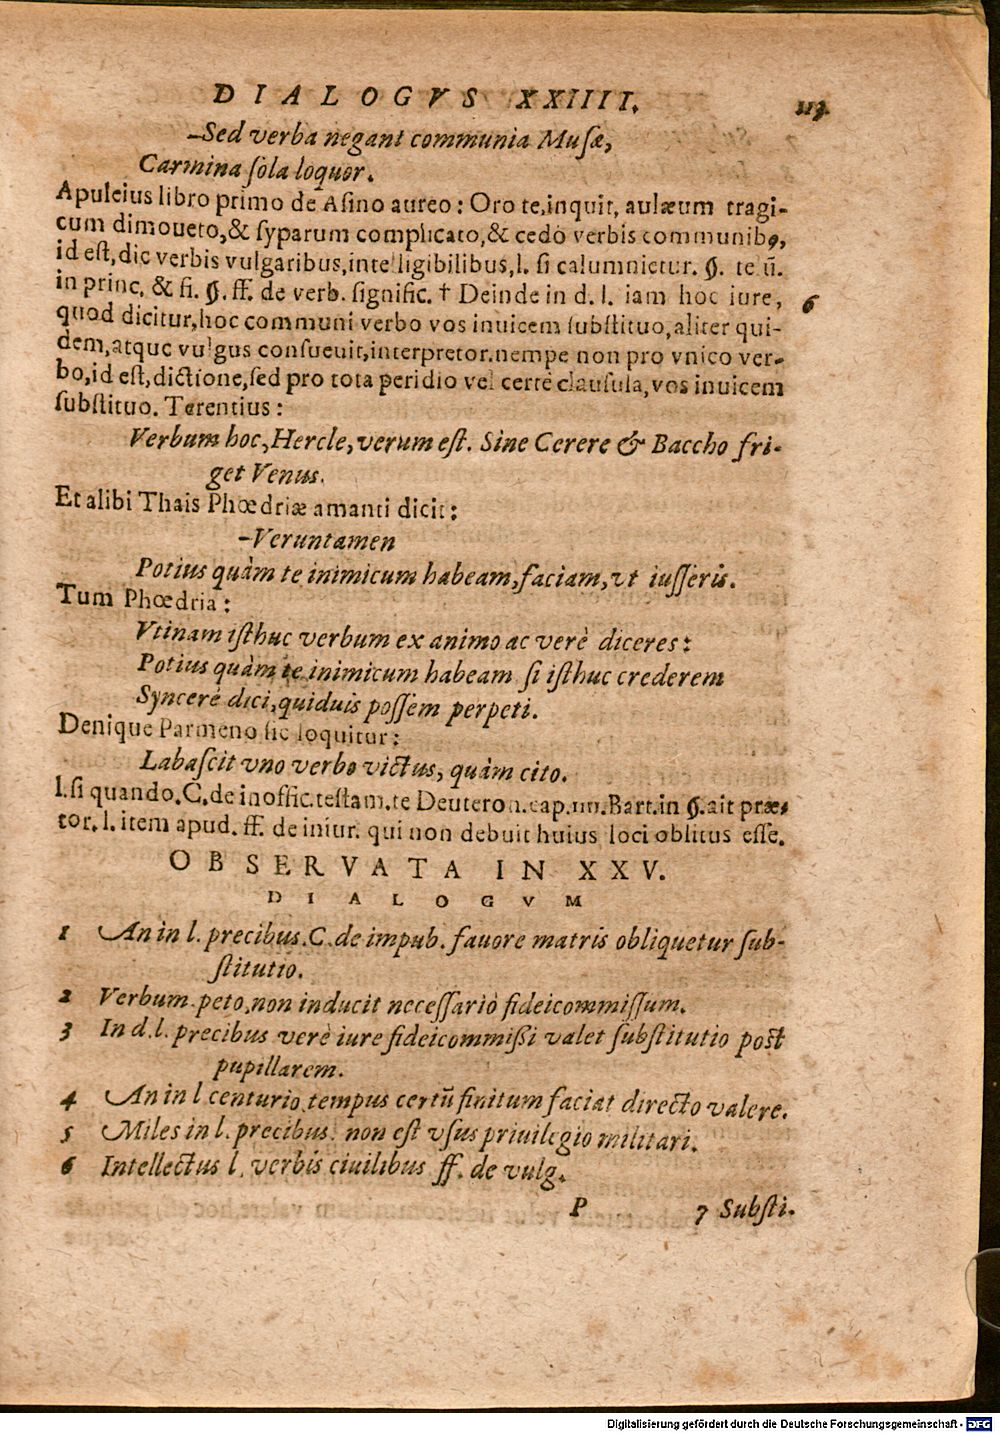 DIALOGVS XXIIII. 113
–Sed verba negant communia Musæ,
Carmina sola loquor.
Apuleius libro primo de Asino aureo: Oro te, inquit, aulæum tragi-
cum dimoueto, & syparum complicato, & cedo verbis communibꝰ,
id est, dic verbis vulgaribus, intelligibilibus, l. si calumnietur. §. te ū.
in princ. & fi. §. ff. de verb. signific. † Deinde in d. l. iam hoc iure, 6
quod dicitur, hoc communi verbo vos inuicem substituo, aliter qui-
dem, atque vulgus consueuit, interpretor. nempe non pro vnico ver-
bo, id est, dictione, sed pro tota peridio vel certè clausula, vos inuicem
substituo. Terentius:
Verbum hoc, Hercle, verum est. Sine Cerere & Baccho fri-
get Venus.
Et alibi Thais Phœdriæ amanti dicit:
–Veruntamen
Potius quàm te inimicum habeam, faciam, vt iusseris.
Tum Phœdria:
Vtinam isthuc verbum ex animo ac verè diceres:
Potius quàm te inimicum habeam si isthuc crederem
Syncerè dici, quiduis possem perpeti.
Denique Parmeno sic loquitur:
Labascit vno verbo victus, quàm cito.
l. si quando. C. de inoffic. testam. te Deuteron. cap. iiii. Bart. in §. ait præ-
tor. l. item apud. ff. de iniur. qui non debuit huius loci oblitus esse.
OBSERVATA IN XXV.
DIALOGVM
1 An in l. precibus. C. de impub. fauore matris obliquetur sub-
stitutio.
2 Verbum peto, non inducit necessariò fideicommissum.
3 In d. l. precibus verè iure fideicommißi valet substitutio post
pupillarem.
4 An in l centurio, tempus certū finitum faciat directo valere.
5 Miles in l. precibus. non est vsus priuilegio militari.
6 Intellectus l. verbis ciuilibus ff. de vulg.
P 7 Substi.
Digitalisierung gefördert durch die Deutsche Forschungsgemeinschaft - DFG